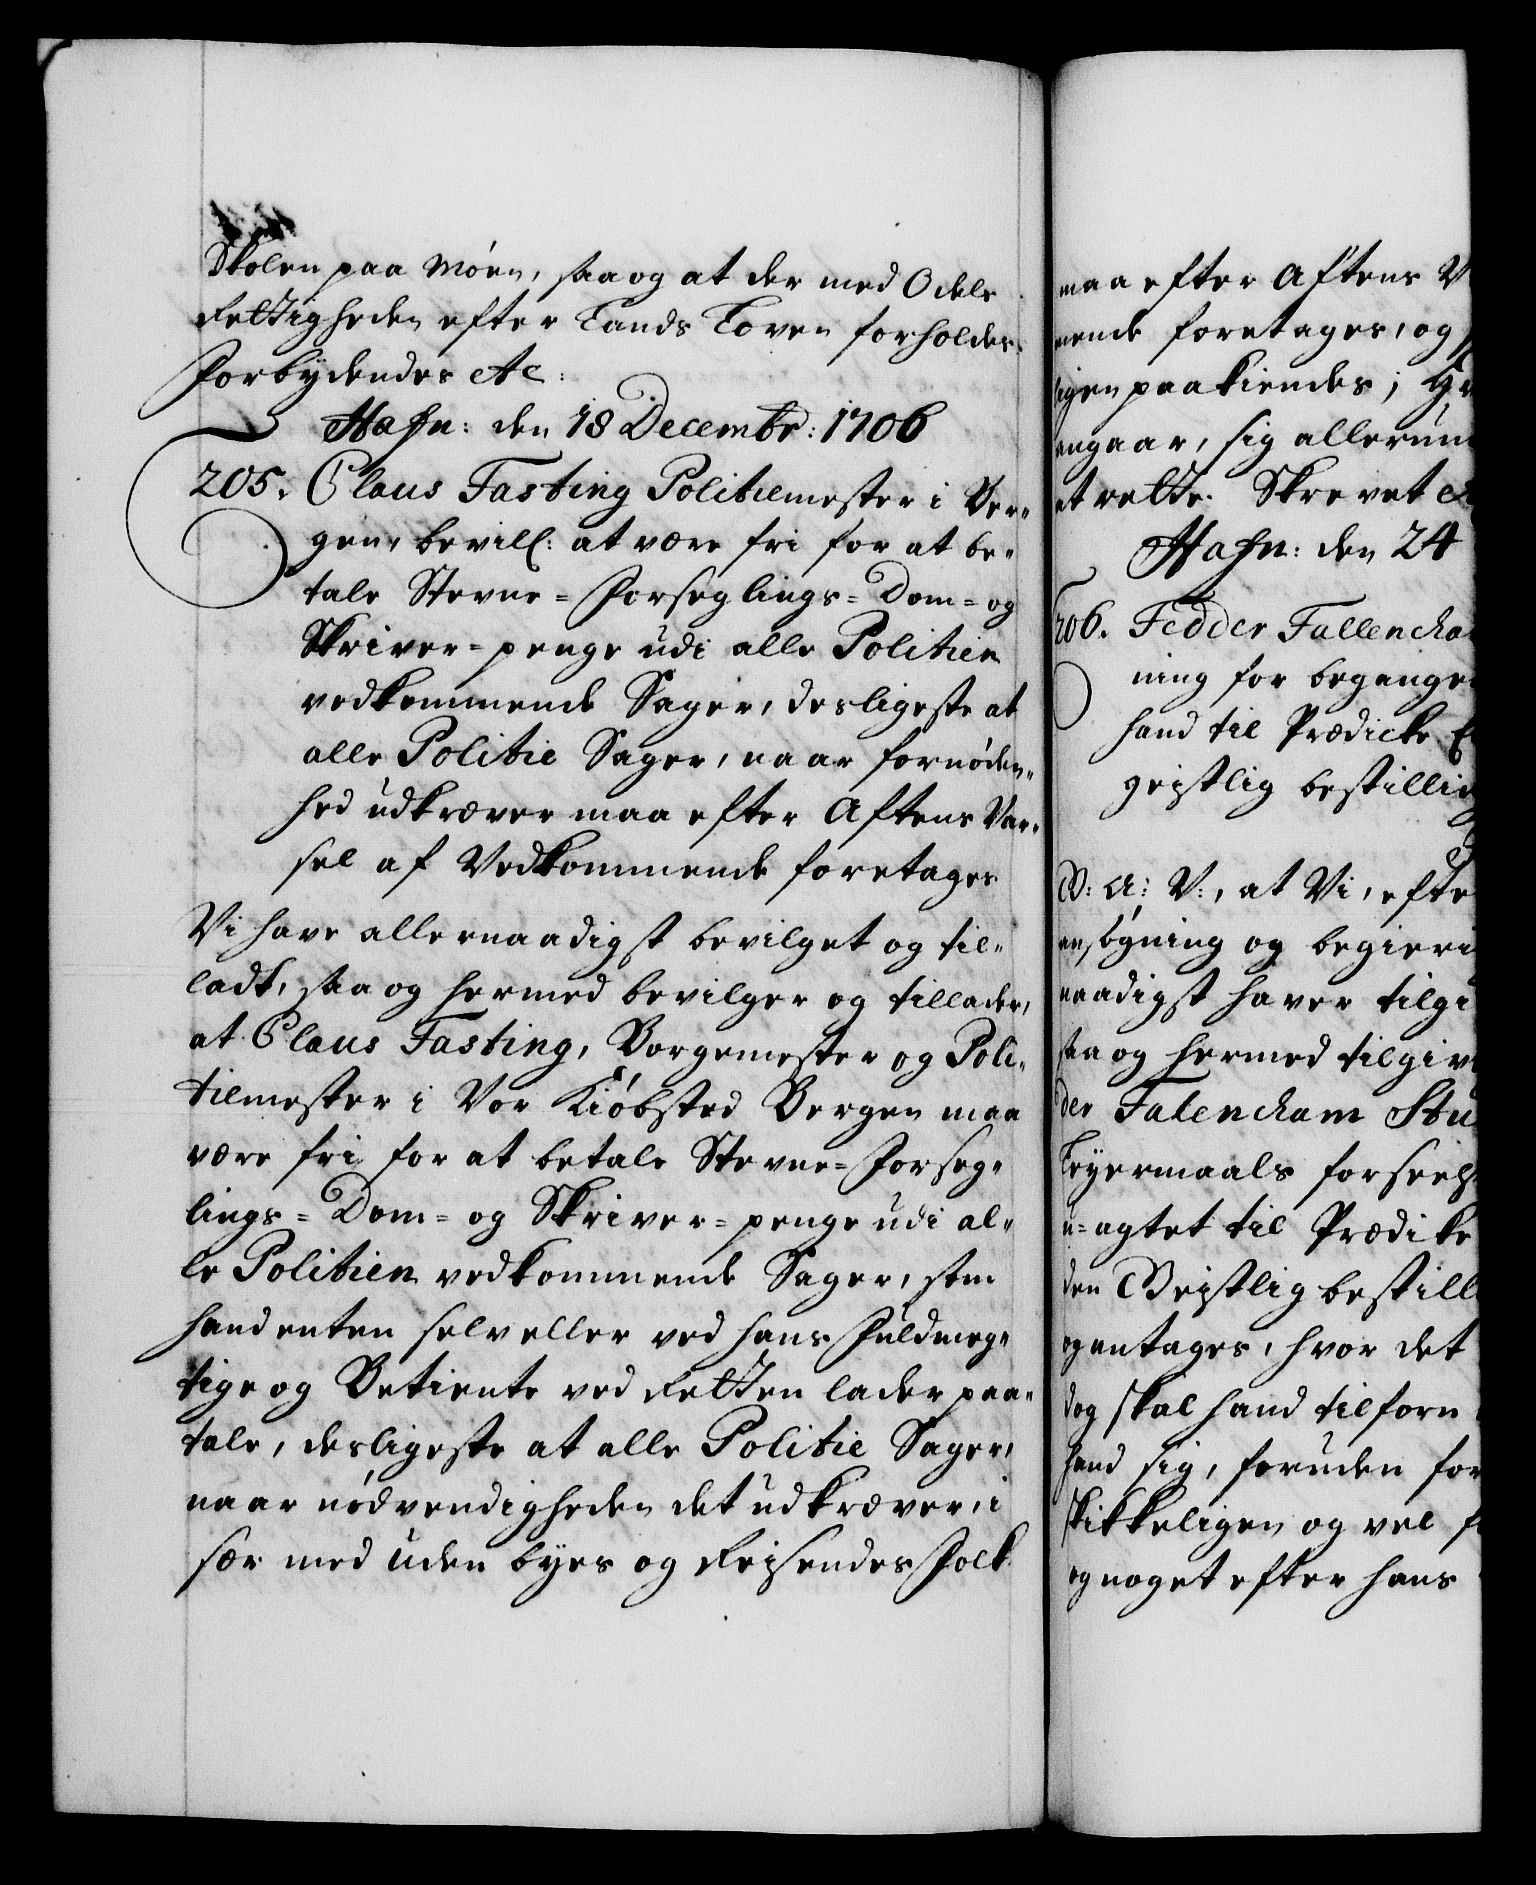 Skolen paa Møen, saa og at der med Odels
Rettigheden efter Lands Loven forholdes.
Forbydendes etc:
Hafn: den 18 Decembr: 1706
205. Claus Fasting Politiemester i Ber=
gen, bevill: at være fri for at be=
tale Stevne= Forseglings= Dom= og
Skriver= penge udi alle Politien
vedkommende Sager, desligeste at
alle Politie Sager, naar fornøden=
hed udkræver maa efter Aftens Var=
sel af Vedkommende foretages
Vi have allernaadigst bevilget og til=
ladt, saa og hermed bevilger og tillader,
at Claus Fasting, Borgemester og Poli=
tiemester i Vor Kiøbsted Bergen maa
være fri for at betale Stevne= Forseg=
lings= Dom= og Skriver= penge udi al=
le Politien vedkommende Sager, som
hand enten selv eller ved hans Fuldmeg=
tige og Betiente ved Retten lader paa=
tale, desligeste at alle Politie Sager,
naar nødvendigheden det udkræver, i
sær med uden byes og Reisendes Folk
maa efter Aftens V
mende foretages, og
ligen paakiendes;
angaar, sig allerun
at rette. Skrevet
Hafn: den 24
206. Fedder Fallencka
ning for begangen
hand til Prædicke
geistlig bestilling
G: A: V:, at Vi, efter
ansøgning og begiering
naadigst haver tilgi
saa og hermed tilgive
der Falenckam Stu
Leyermaals forseelse
u= agtet til Prædike
den Geistlig bestill
og antages, hvor det
dog skal hand tilforn
hand sig, foruden for
skikkeligen og vel
og noget efter hans